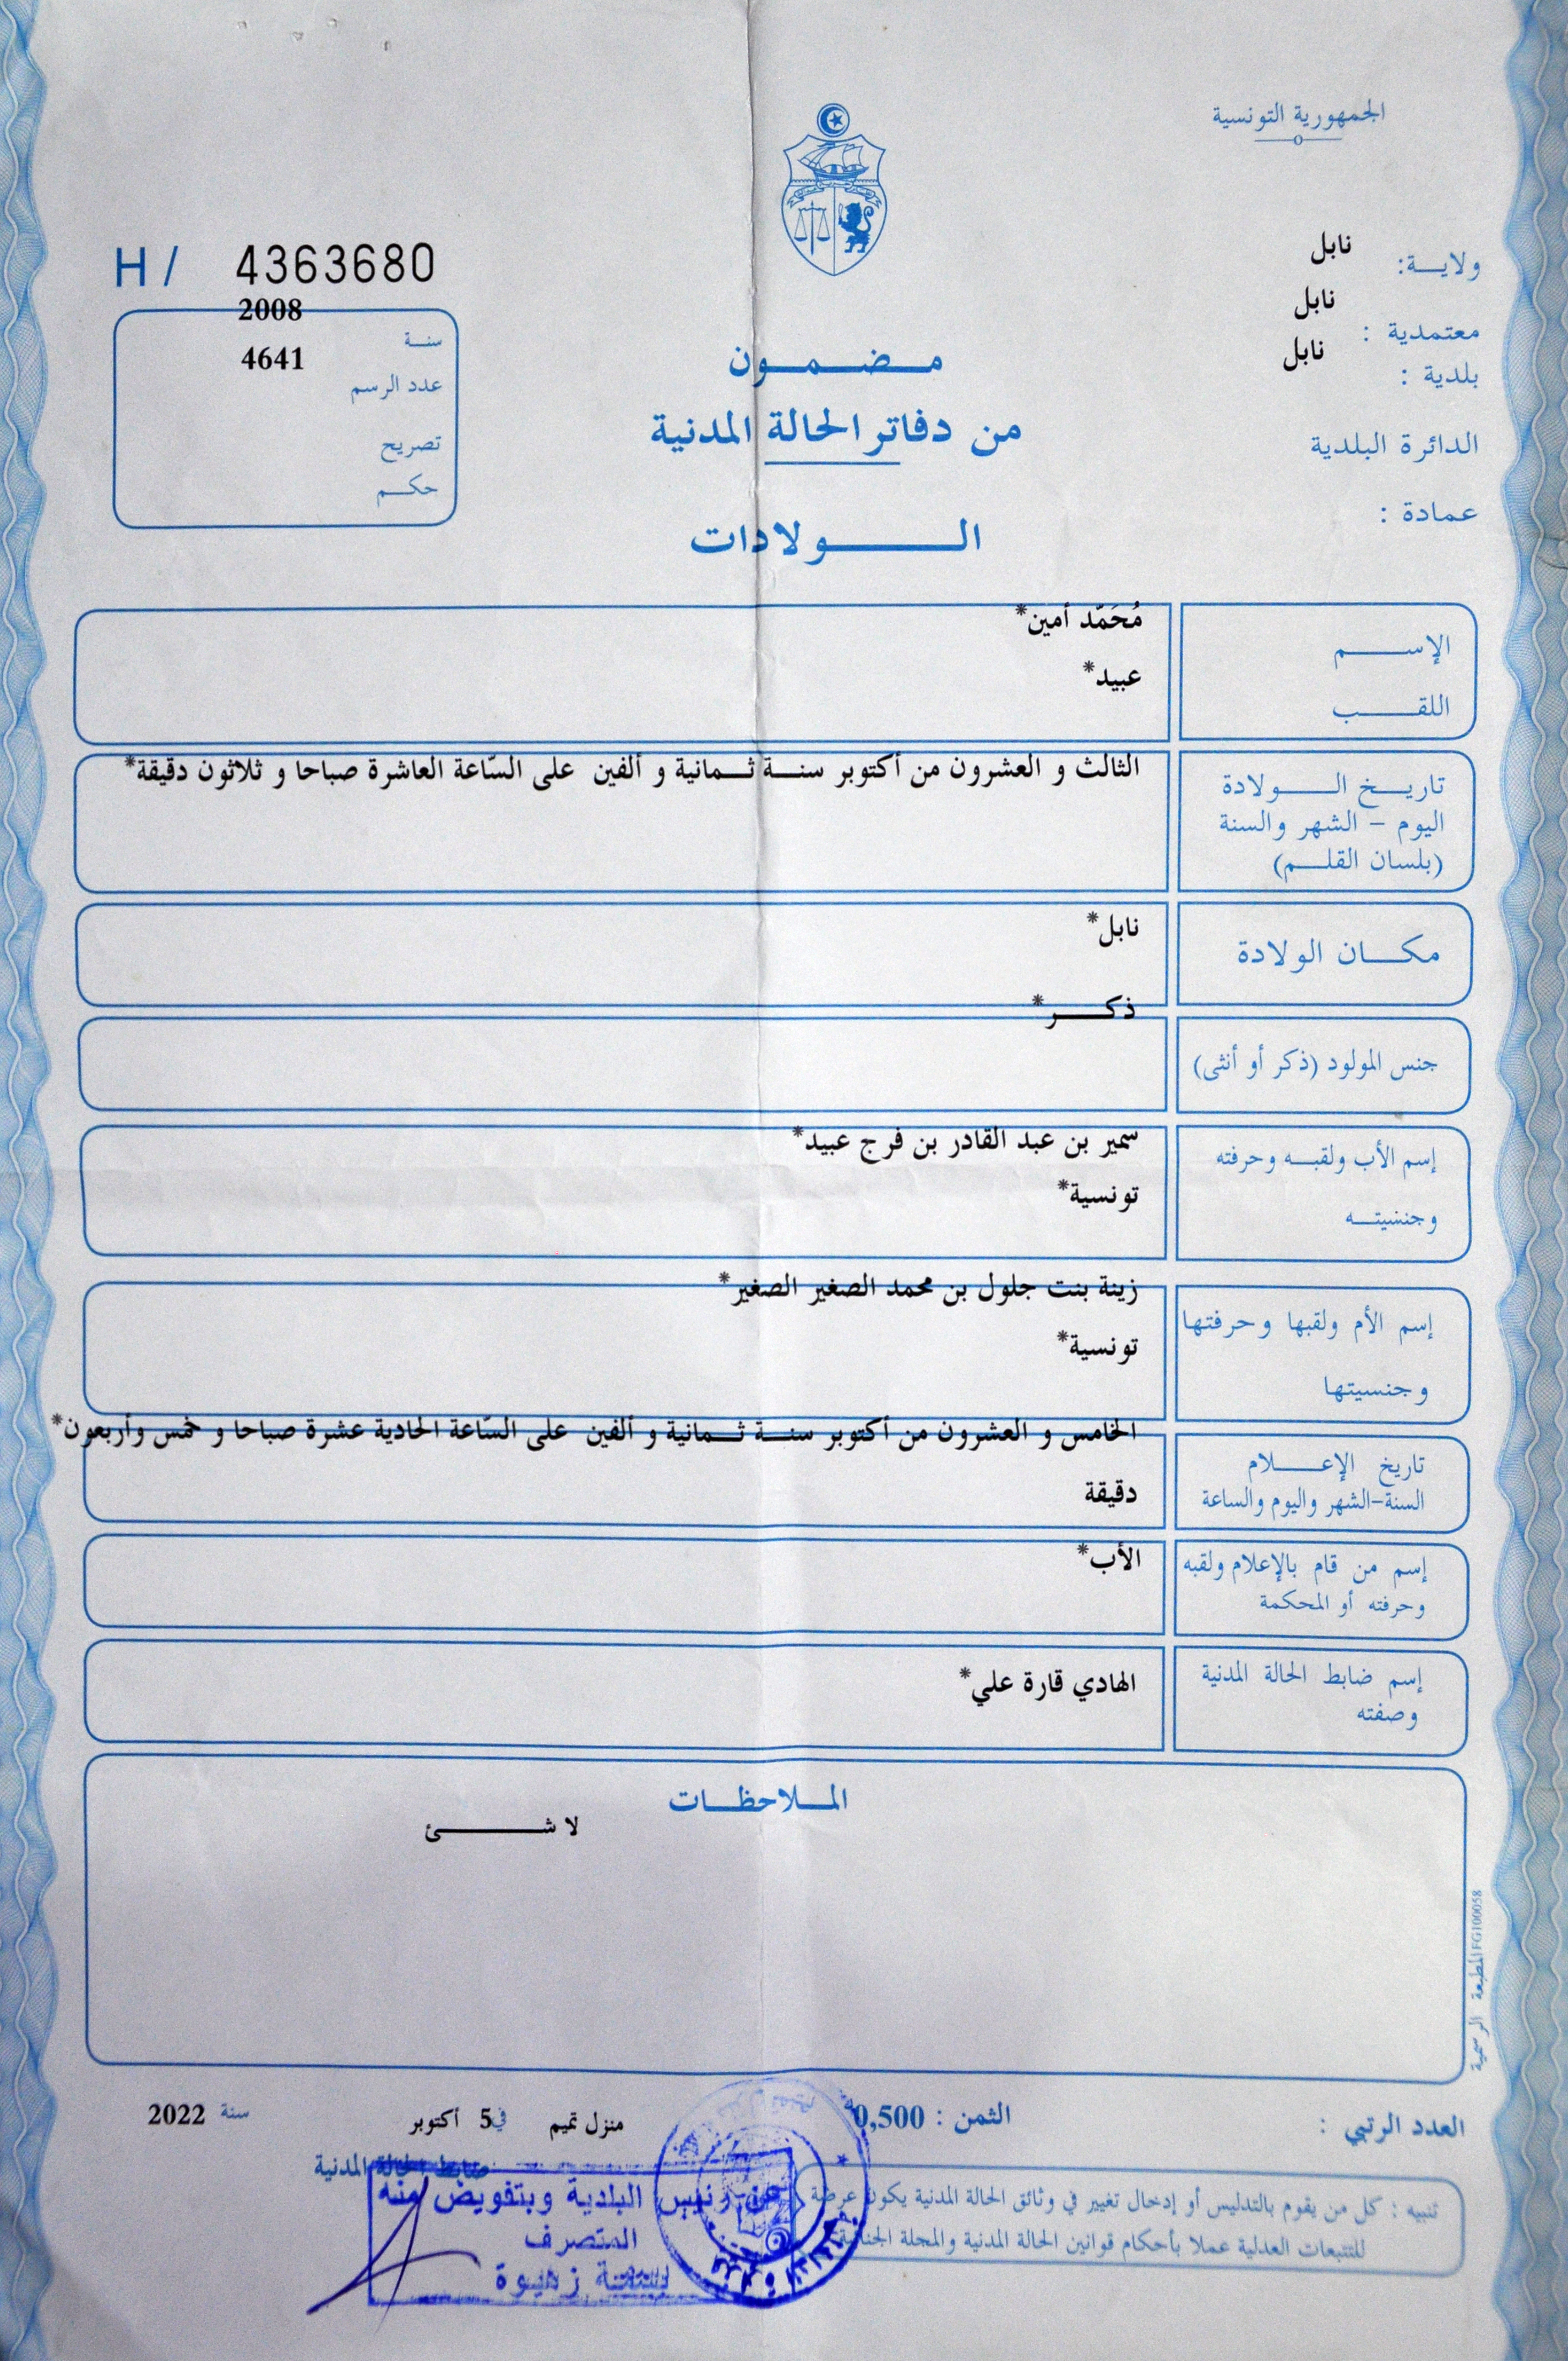 الجمهورية التونسية
ولايـــة: نابل
معتمدية : نابل
بلدية : نابل
الدائرة البلدية
عمادة :
H/ 4363680
سنــة 2008
عدد الرسم 4641
تصريح
حكــم
مـــضـــمــــون
من دفاتر الحالة المدنية
الــــــــولادات
الإســـــــم مُحَمّد أمين*
اللقـــــــب عبيد*
تاريــخ الــــــولادة
اليوم - الشهر والسنة
(بلسان القلـــم)
الثالث و العشرون من أكتوبر سنـــة ثـــمانية و ألفين على السّاعة العاشرة صباحا و ثلاثون دقيقة*
مكــــان الولادة نابل*
جنس المولود (ذكر أو أنثى) ذكـــــر*
إسم الأب ولقبــه وحرفته سمير بن عبد القادر بن فرج عبيد*
وجنسيتـــه تونسية*
إسم الأم ولقبها وحرفتها زينة بنت جلول بن محمد الصغير الصغير*
وجنسيتها تونسية*
تاريخ الإعــــــلام
السنة-الشهر واليوم والساعة
الخامس و العشرون من أكتوبر سنـــة ثـــمانية و ألفين على السّاعة الحادية عشرة صباحا و خمس وأربعون*
دقيقة
إسم من قام بالإعلام ولقبه
وحرفته أو المحكمة
الأب*
إسم ضابط الحالة المدنية
وصفته
الهادي قارة علي*
المــلاحظــــات
لا شـــــــــئ
المطبعة الرسمية FG100058
العدد الرتبي :
الثمن : 0,500
منزل تميم في 5 أكتوبر سنة 2022
ضابط الحالة المدنية
تنبيه : كل من يقوم بالتدليس أو إدخال تغيير في وثائق الحالة المدنية يكون عرضة
للتتبعات العدلية عملا بأحكام قوانين الحالة المدنية والمجلة الجنائية
عن رئيس البلدية وبتفويض منه
المتصرف
بسمة زهيوة